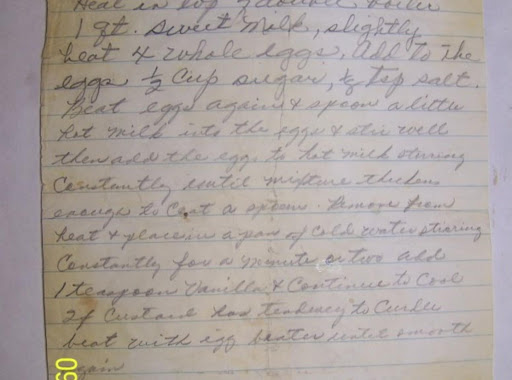 Heat in top of double boiler
1 qt. sweet milk, slightly
beat 4 whole eggs. Add to the
eggs ½ cup sugar, ¼ tsp salt.
Beat eggs again & spoon a little
hot milk into the eggs & stir well
then add the eggs to hot milk stirring
Constantly until mixture thickens
enough to coat a spoon. Remove from
heat & place in a pan of cold water stirring
Constantly for a minute or two add
1 teaspoon Vanilla & Continue to Cool
If Custard has tendency to Curdle
beat with egg beater until smooth
again
60